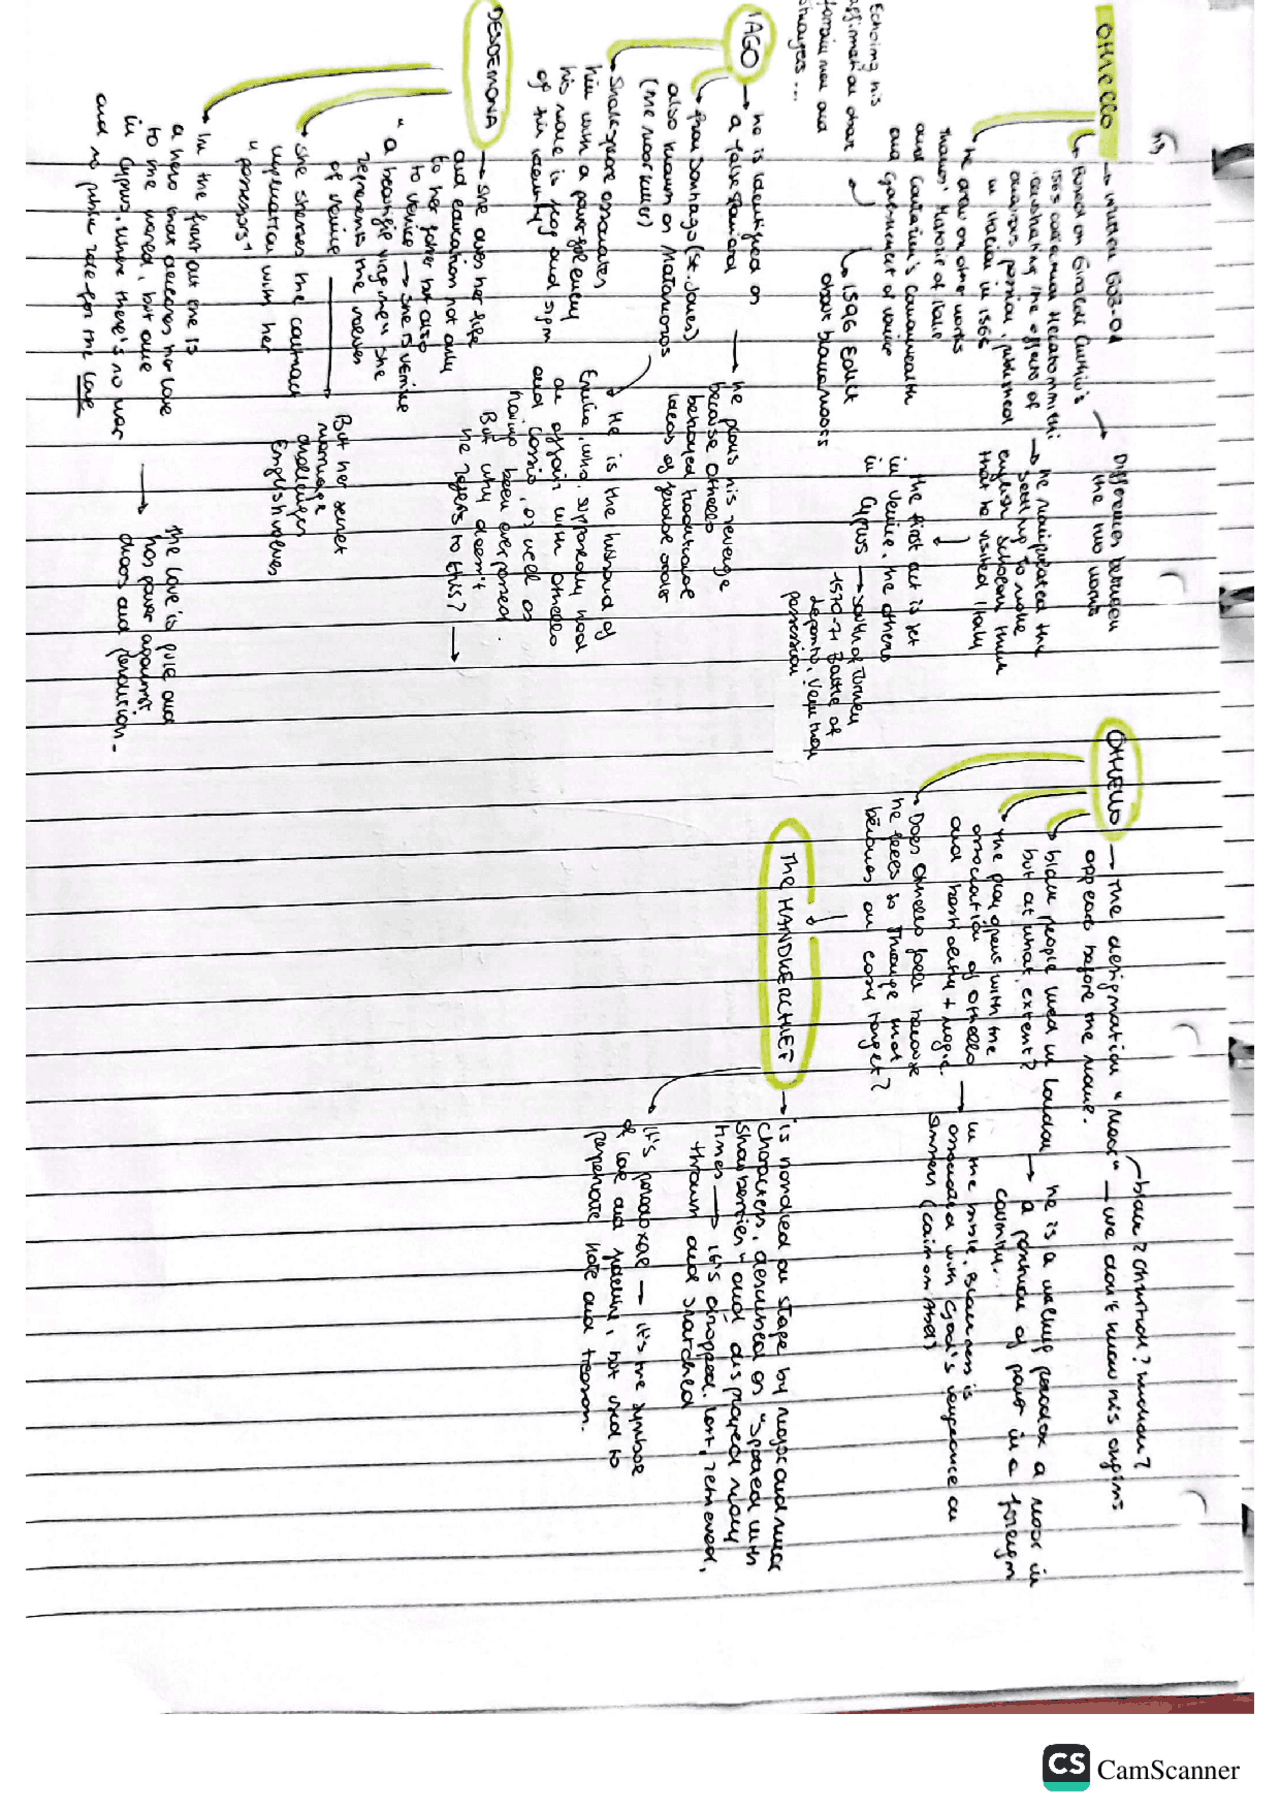 OTHELLO → written 1603-04
Based on Giraldi Cinthio's
1565 collection Hecatommithi
illustrating the effects of
dangerous passion, published
in Italian in 1565
He drew on other works
Thomas' Historie of Italie
and Contarini's Commonwealth
and Government of Venice
→ 1596 Edict
about blackamoors
Echoing his
affirmation about
foreign men and
strangers...
→ Differences between
the two works
→ he manipulated the
setting to make
english scholars think
that he visited Italy
the first act is set
in Venice, the others
in Cyprus → south of Turkey
-1570-71 Battle of
Lepanto, Venetian
possession
IAGO → he is identified as
a false Spaniard
from Santiago (St. James)
also known as Matamoros
(the moor killer)
Shakespeare associates
him with a foreign enemy
his name is and sign
of his identity
→ he plans his revenge
because Othello
betrayed traditional
ideas of gender order
He is the husband of
Emilia, who, supposedly had
an affair with Othello
and Cassio, as well as
having been overpassed.
But why doesn't
he refers to this? →
DESDEMONA → She owes her life
and education not only
to her father but also
to Venice → she is Venice
"a beautiful virgine" she
represents the values
of Venice
She stresses the contract
implication with her
"possessors"
In the first act she is
a hero that declares her love
to the world, but alone
in Cyprus, where there's no war
and no public role for the love
But her secret
marriage
challenges
English values
→ the love is pure and
has power against
chaos and perdition-
OTHELLO — the designation "Moor" — we don't know his origins
appears before the name.
black? Christian? Muslim?
black people lived in London
but at what extent?
→ he is a walking paradox a moor in
a position of power in a foreign
country...
the play opens with the
association of Othello
and bestiality + magic
→ in the bible, Blackness is
associated with God's vengeance on
sinners (Cain on Abel)
Does Othello fall because
he feels so through what
becomes an easy target?
The HANDKERCHIEF
→ is handled on stage by major and minor
characters, described as "spotted with
strawberries" and displayed many
times → it's dropped, lost, retrieved,
thrown and snatched
it's paradoxal → it's the symbol
of love and fidelity, but used to
perpetrate hate and treason.
CS CamScanner